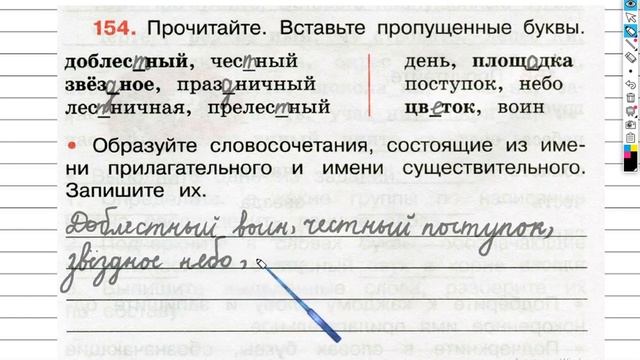 154. Прочитайте. Вставьте пропущенные буквы.
доблестный, честный
звёздное, праздничный
лестничная, прелестный
день, площадка
поступок, небо
цветок, воин
• Образуйте словосочетания, состоящие из име-
ни прилагательного и имени существительного.
Запишите их.
Доблестный воин, честный поступок,
звёздное небо,